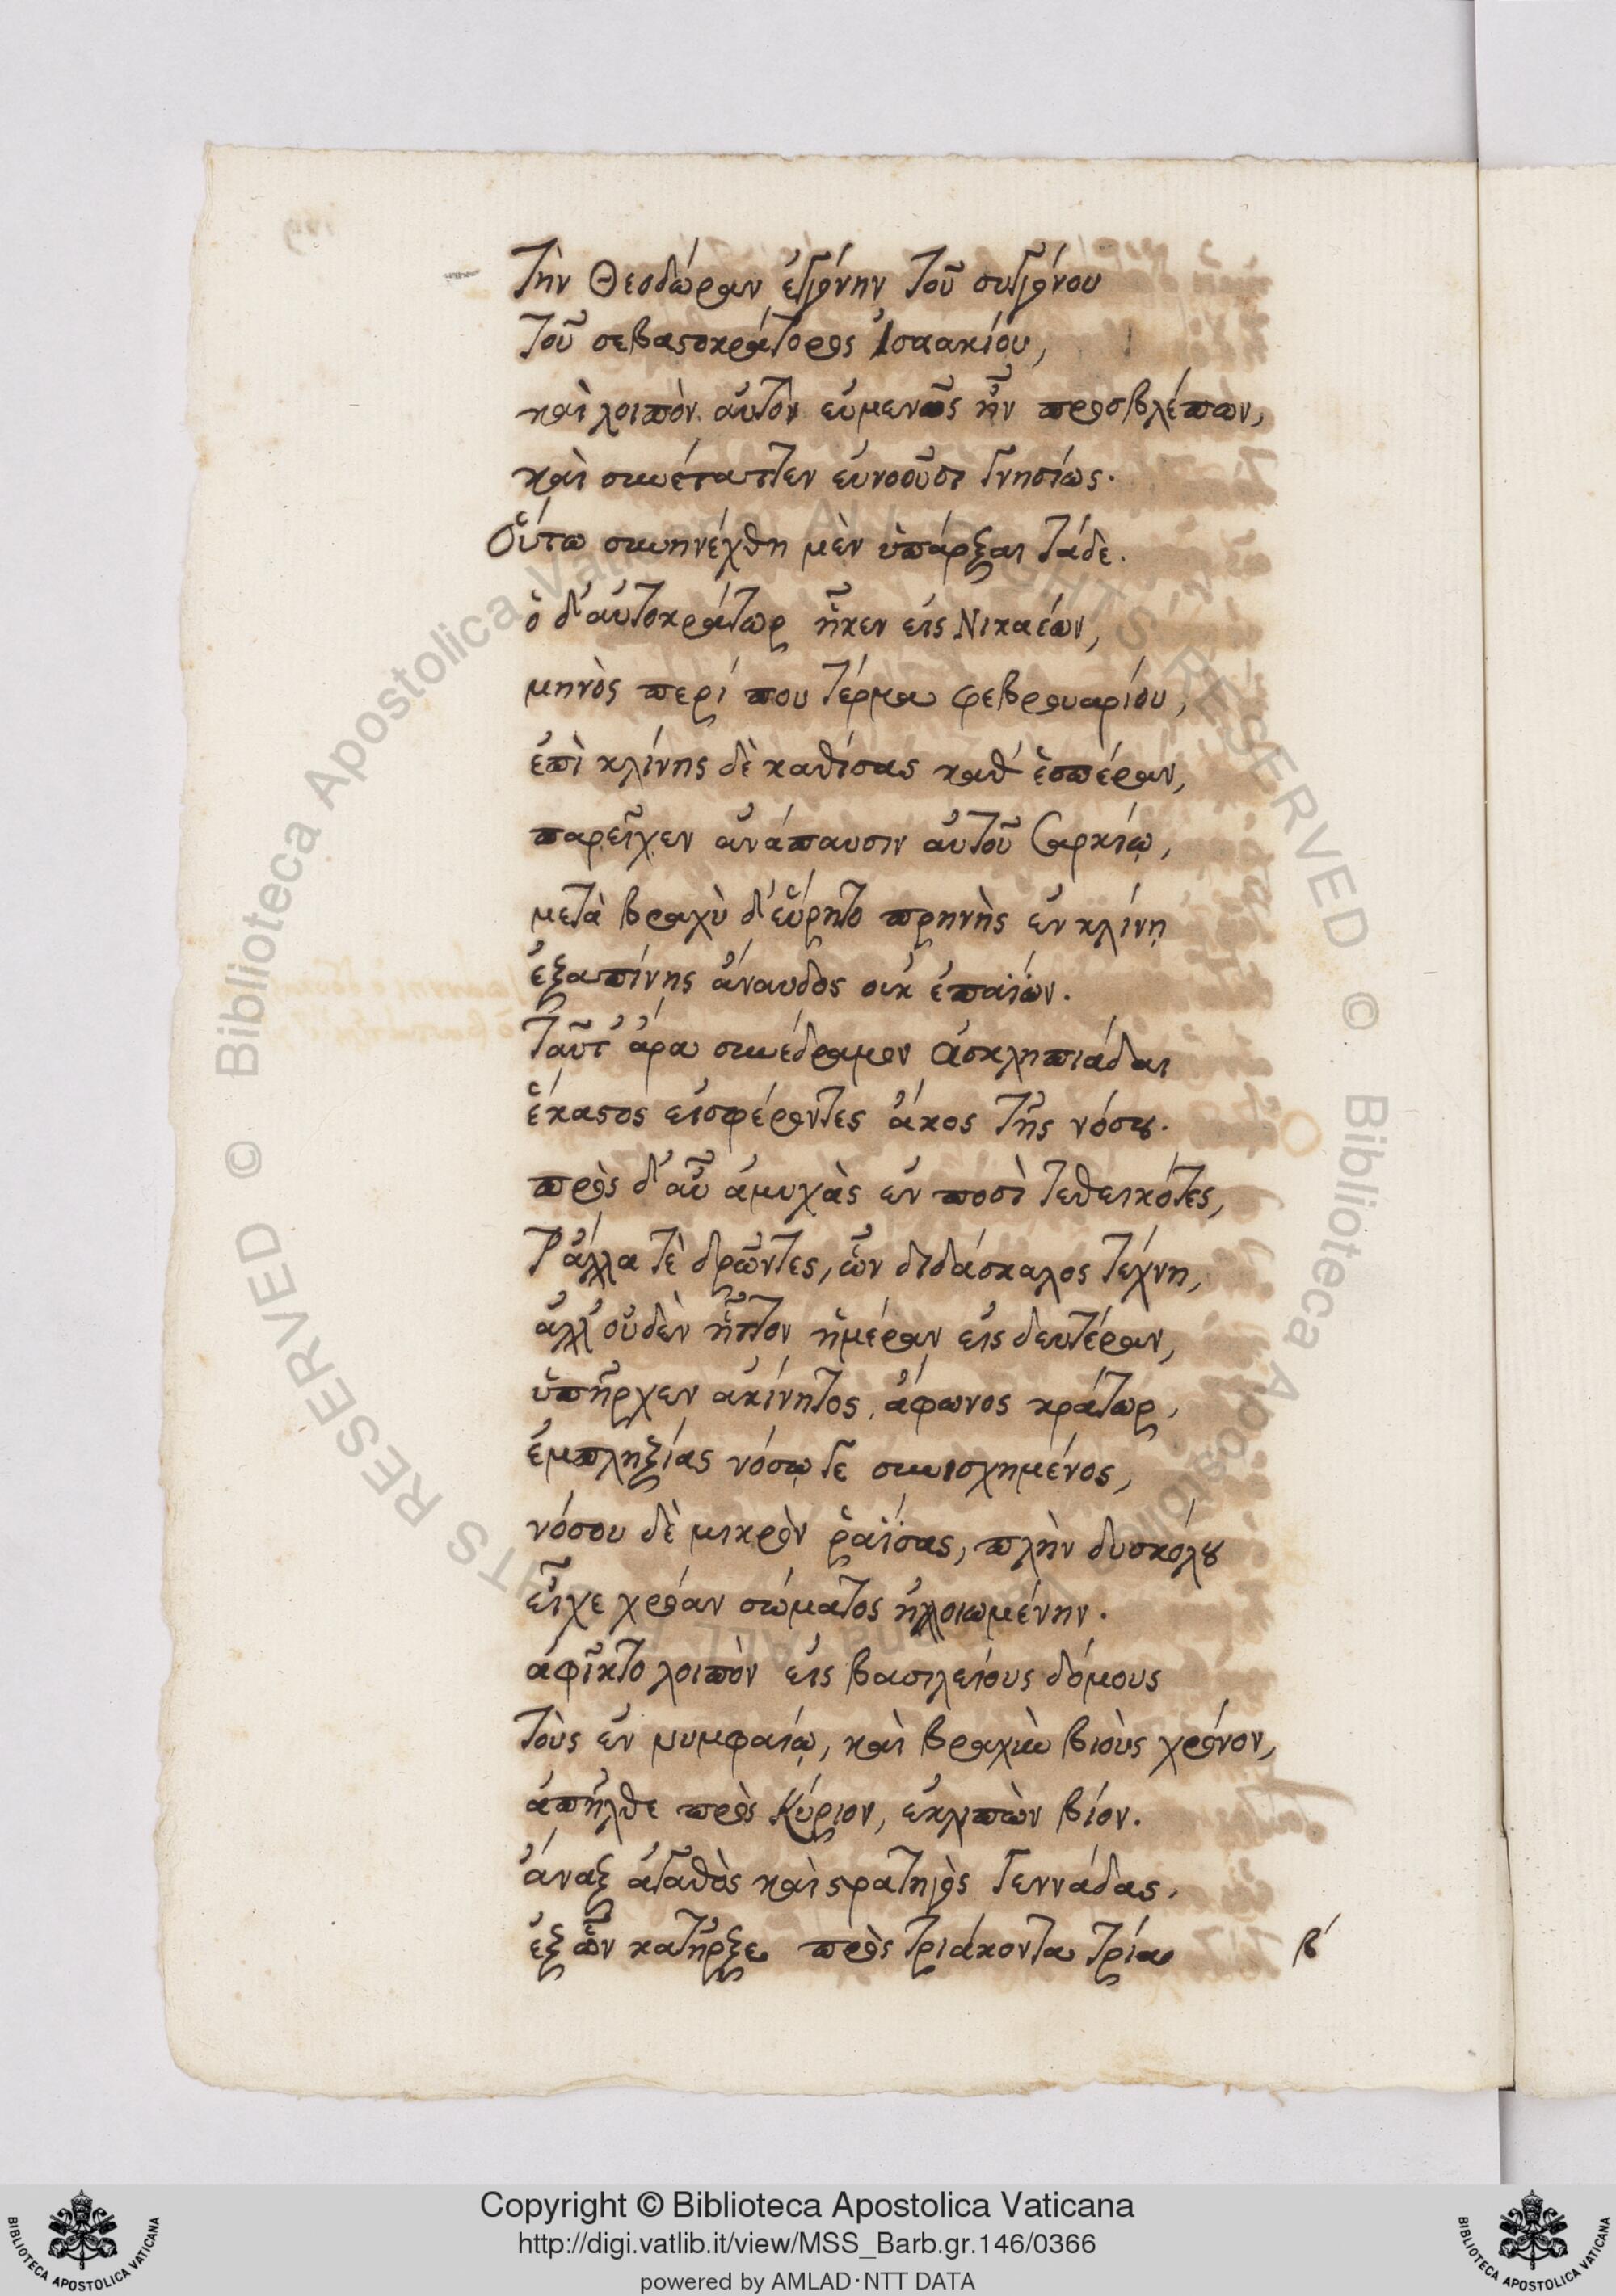 Τὴν Θεοδώραν ἐγγόνην τοῦ συγγόνου
τοῦ σεβαστοκράτορος Ἰσαακίου,
καὶ λοιπὸν αὐτὸν εὐμενῶς ἦν προσβλέπων,
καὶ συνέταττεν εὐνοοῦσι γνησίως.
Οὕτω συνηνέχθη μὲν ὑπάρξαι τάδε.
ὁ δ' αὐτοκράτωρ ἧκεν εἰς Νικαέων,
μηνὸς περί που τέρμα φεβρουαρίου,
ἐπὶ κλίνης δὲ καθίσας καθ' ἑσπέραν,
παρεῖχεν ἀνάπαυσιν αὐτοῦ σαρκίῳ,
μετὰ βραχὺ δ' εὕρητο πρηνὴς ἐν κλίνῃ
ἐξαπίνης ἄναυδος οὐκ ἐπαΐων.
Ταῦτ' ἄρα συνέδραμον ἀσκληπιάδαι
ἕκαστος εἰσφέροντες ἄκος τῆς νόσου.
πρὸς δ' αὖ ἀμυχὰς ἐν ποσὶ τεθεικότες,
Τ' ἄλλα τὲ δρῶντες, ὧν διδάσκαλος τέχνη,
ἀλλ' οὐδὲν ἧττον ἡμέραν εἰς δευτέραν,
ὑπῆρχεν ἀκίνητος, ἄφωνος κράτωρ,
ἐμπληξίας νόσῳ γε συνισχημένος,
νόσου δὲ μικρὸν ῥαΐσας, πλὴν δυσκόλου
εἶχε χρόαν σώματος ἠλλοιωμένην.
ἀφῖκτο λοιπὸν εἰς βασιλείους δόμους
τοὺς ἐν νυμφαίῳ, καὶ βραχὺν βιοὺς χρόνον,
ἀπῆλθε πρὸς Κύριον, ἐκλιπὼν βίον.
ἄναξ ἀγαθὸς καὶ στρατηγὸς γεννάδας,
ἐξ ὧν κατῆρξε πρὸς τριάκοντα τρία β'
Copyright © Biblioteca Apostolica Vaticana
http://digi.vatlib.it/view/MSS_Barb.gr.146/0366
powered by AMLAD·NTT DATA
© Biblioteca Apostolica Vaticana ALL RIGHTS RESERVED
© Biblioteca Apostolica Vaticana ALL RIGHTS RESERVED
BIBLIOTECA APOSTOLICA VATICANA
BIBLIOTECA APOSTOLICA VATICANA